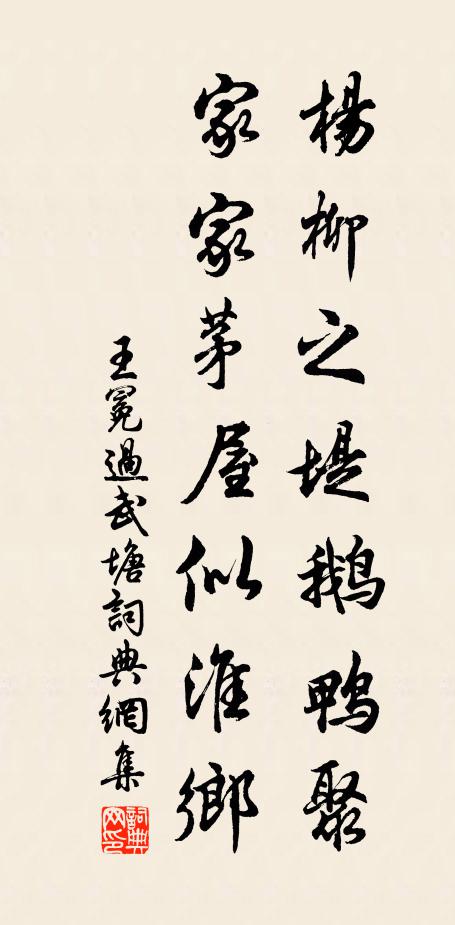 楊柳之堤鵝鴨聚
家家茅屋似淮鄉
王冕過武塘詞典網集
詞典網印